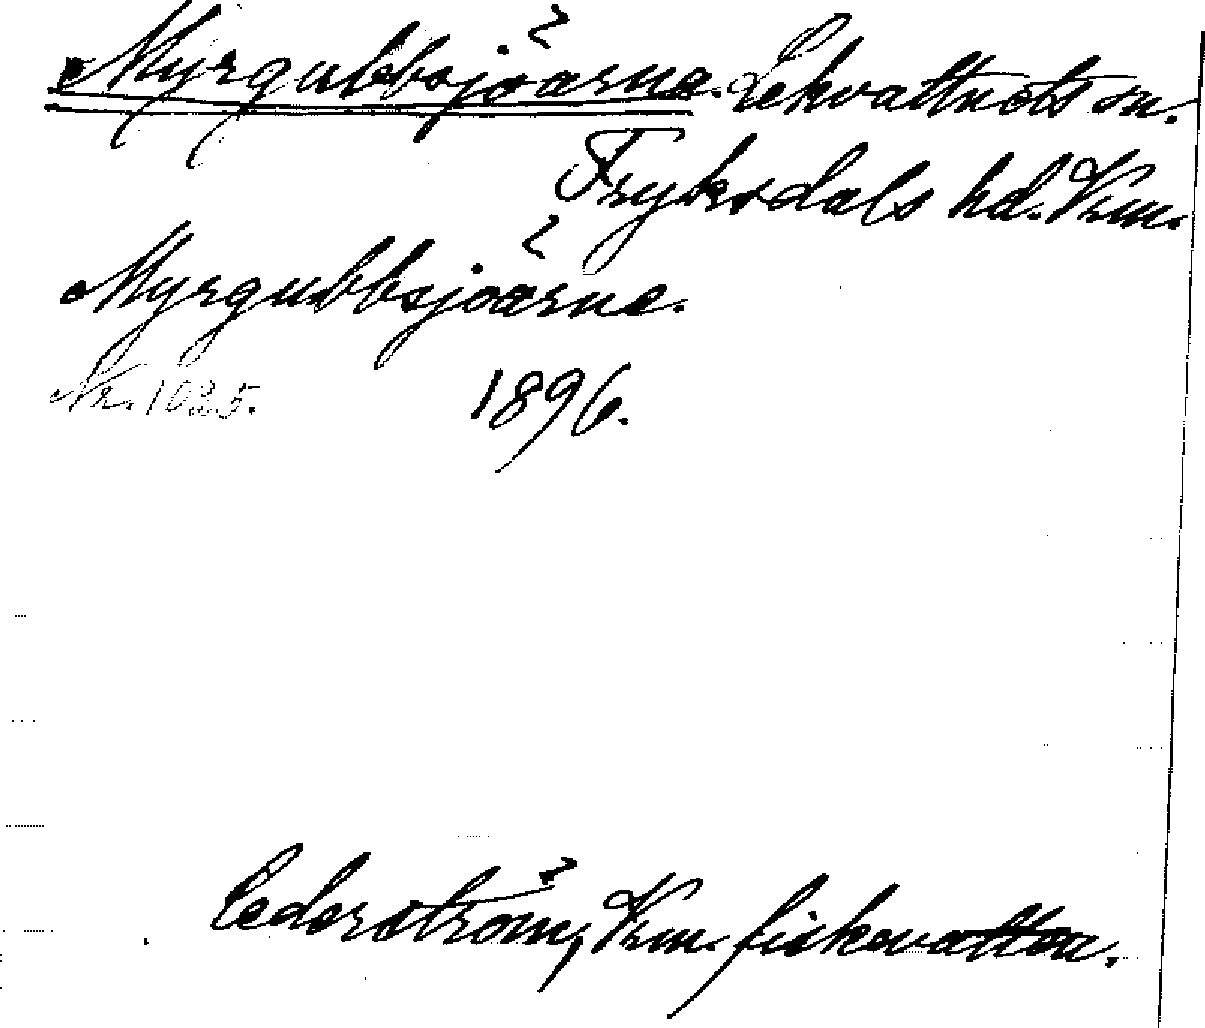 Myrgubbsjöarne. Lekvattnets sn.
Fryksdals hd. Vrm.
Myrgubbsjöarne.
Nr. 1025. 1896.
Cederström, Vrm. fiskevatten.